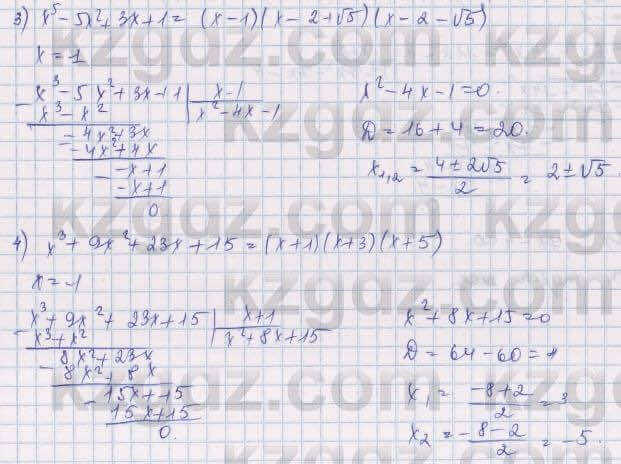 3) x⁵ - 5x² + 3x + 1 = (x - 1)(x - 2 + √5)(x - 2 - √5)
x = 1
x³ - 5x² + 3x + 1 | x - 1
x³ - x² | x² - 4x - 1
- 4x² + 3x
- 4x² + 4x
- x + 1
- x + 1
0
x² - 4x - 1 = 0.
D = 16 + 4 = 20.
x₁,₂ = (4 ± 2√5)/2 = 2 ± √5.
4) x³ + 9x² + 23x + 15 = (x + 1)(x + 3)(x + 5)
x = -1
x³ + 9x² + 23x + 15 | x + 1
x³ + x² | x² + 8x + 15
8x² + 23x
8x² + 8x
15x + 15
15x + 15
0.
x² + 8x + 15 = 0
D = 64 - 60 = 4
x₁ = (-8 + 2)/2 = 3
x₂ = (-8 - 2)/2 = -5.
kzgdz.com